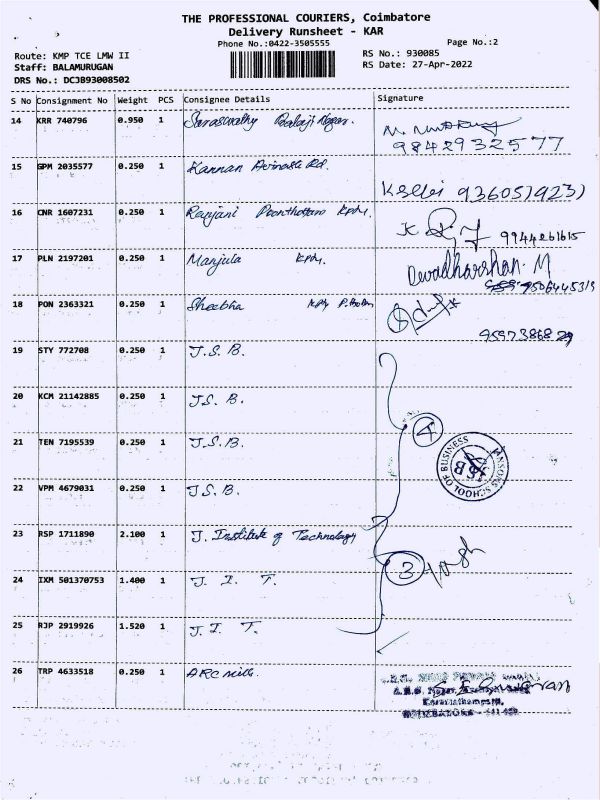 THE PROFESSIONAL COURIERS, Coimbatore
Delivery Runsheet - KAR
Phone No.:0422-3505555
Page No.:2
Route: KMP TCE LMW II
RS No.: 930085
Staff: BALAMURUGAN
RS Date: 27-Apr-2022
DRS No.: DCJB93008502
S No Consignment No Weight PCS Consignee Details Signature
14 KRR 740796 0.950 1 Saraswathy Balaji Nagar.
9842932577
15 GPM 2035577 0.250 1 Kannan Avinashi Rd.
16 CNR 1607231 0.250 1 Ranjani Poonthottam
9944261615
17 PLN 2197201 0.250 1 Manjula
Devadharshan. M
18 PON 2363321 0.250 1 Sheebha
19 STY 772708 0.250 1 J.S.B.
20 KCM 21142885 0.250 1 J.S.B.
4
21 TEN 7195539 0.250 1 J.S.B.
JANSONS SCHOOL OF BUSINESS
JSB
22 VPM 4679031 0.250 1 J.S.B.
23 RSP 1711890 2.100 1 J. Institute of Technology
3
24 IXM 501370753 1.400 1 J. I. T.
25 RJP 2919926 1.520 1 J. I. T.
26 TRP 4633518 0.250 1 ARC mills.